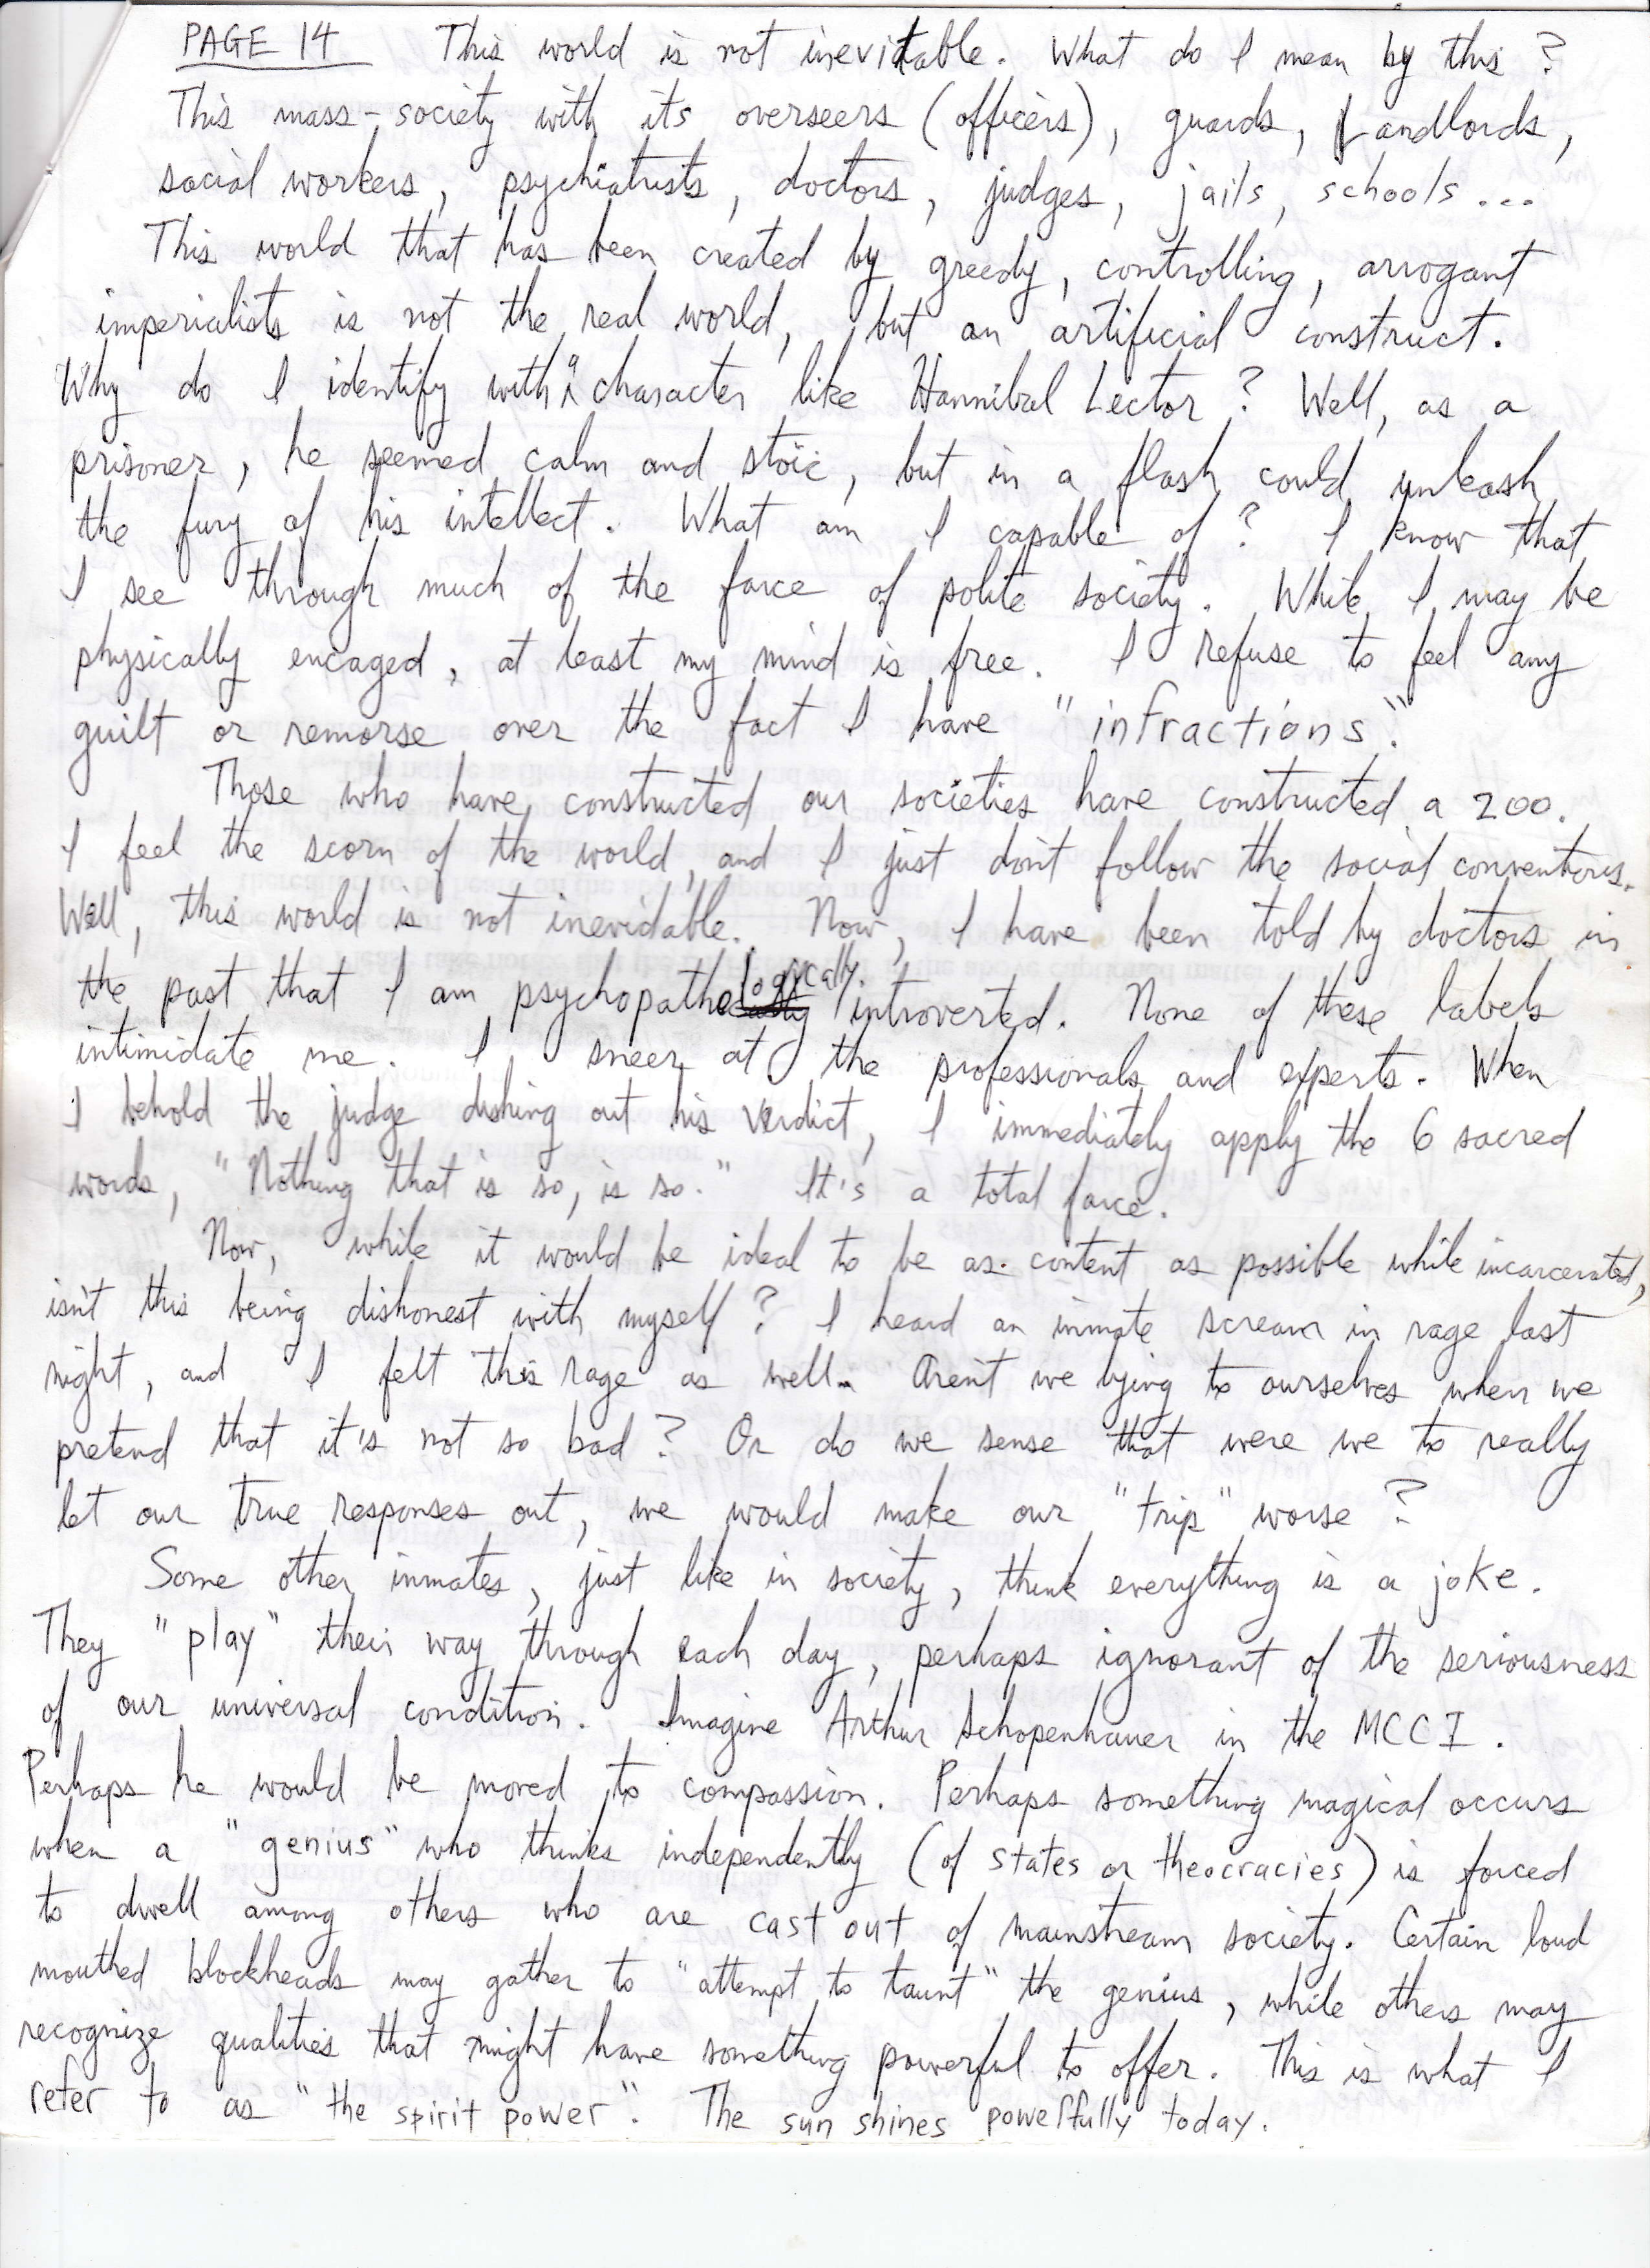 PAGE 14 This world is not inevitable. What do I mean by this?
This mass-society with its overseers (officers), guards, Landlords,
social workers, psychiatrists, doctors, judges, jails, schools...
This world that has been created by greedy, controlling, arrogant
imperialists is not the real world, but an artificial construct.
Why do I identify with a character like Hannibal Lector? Well, as a
prisoner, he seemed calm and stoic, but in a flash could unleash
the fury of his intellect. What am I capable of? I know that
I see through much of the farce of polite society. While I may be
physically encaged, at least my mind is free. I refuse to feel any
guilt or remorse over the fact I have "infractions".
Those who have constructed our societies have constructed a zoo.
I feel the scorn of the world, and I just don't follow the social conventions.
Well, this world is not inevidable. Now, I have been told by doctors in
the past that I am psychopathologically introverted. None of these labels
intimidate me. I sneer at the professionals and experts. When
I behold the judge dishing out his verdict, I immediately apply the 6 sacred
words, "Nothing that is so, is so." It's a total farce.
Now, while it would be ideal to be as content as possible while incarcerated,
isn't this being dishonest with myself? I heard an inmate scream in rage last
night, and I felt this rage as well. Aren't we lying to ourselves when we
pretend that it's not so bad? Or do we sense that were we to really
let our true responses out, we would make our "trip" worse?
Some other inmates, just like in society, think everything is a joke.
They "play" their way through each day, perhaps ignorant of the seriousness
of our universal condition. Imagine Arthur Schopenhauer in the MCCI.
Perhaps he would be moved to compassion. Perhaps something magical occurs
when a "genius" who thinks independently (of states or theocracies) is forced
to dwell among others who are cast out of mainstream society. Certain loud
mouthed blockheads may gather to "attempt to taunt" the genius, while others may
recognize qualities that might have something powerful to offer. This is what I
refer to as "the spirit power". The sun shines powerfully today.